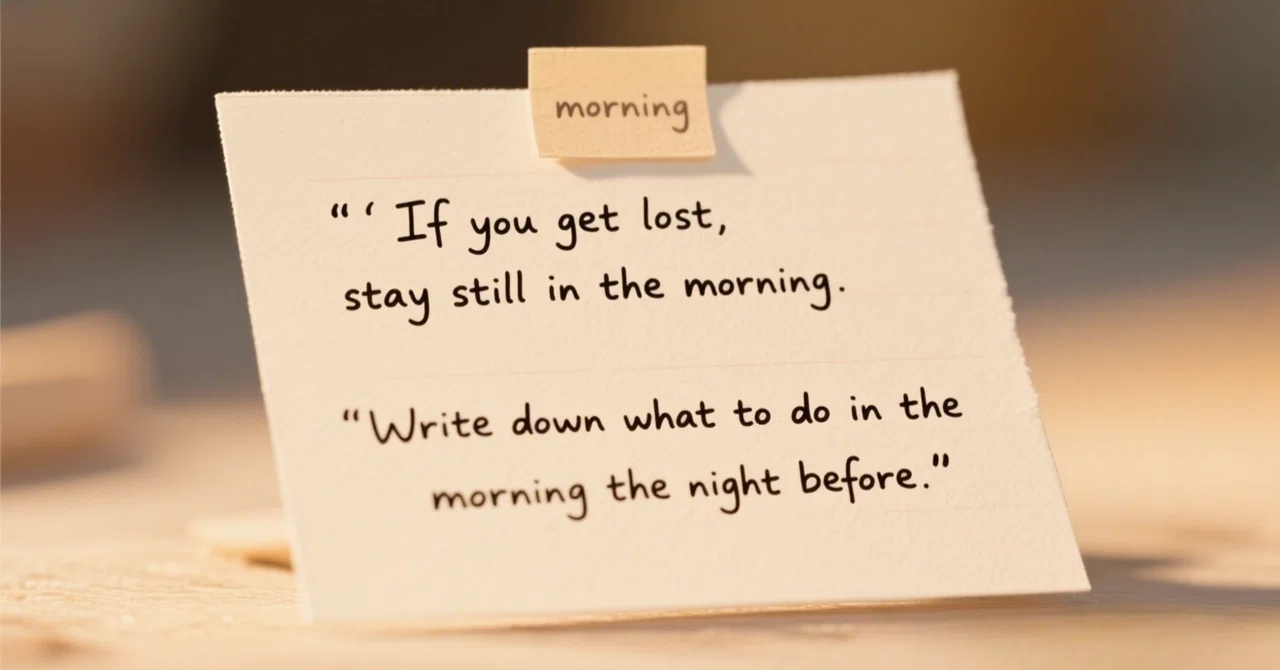 morning
“ ‘ If you get lost,
stay still in the morning.
“Write down what to do in the
morning the night before.”